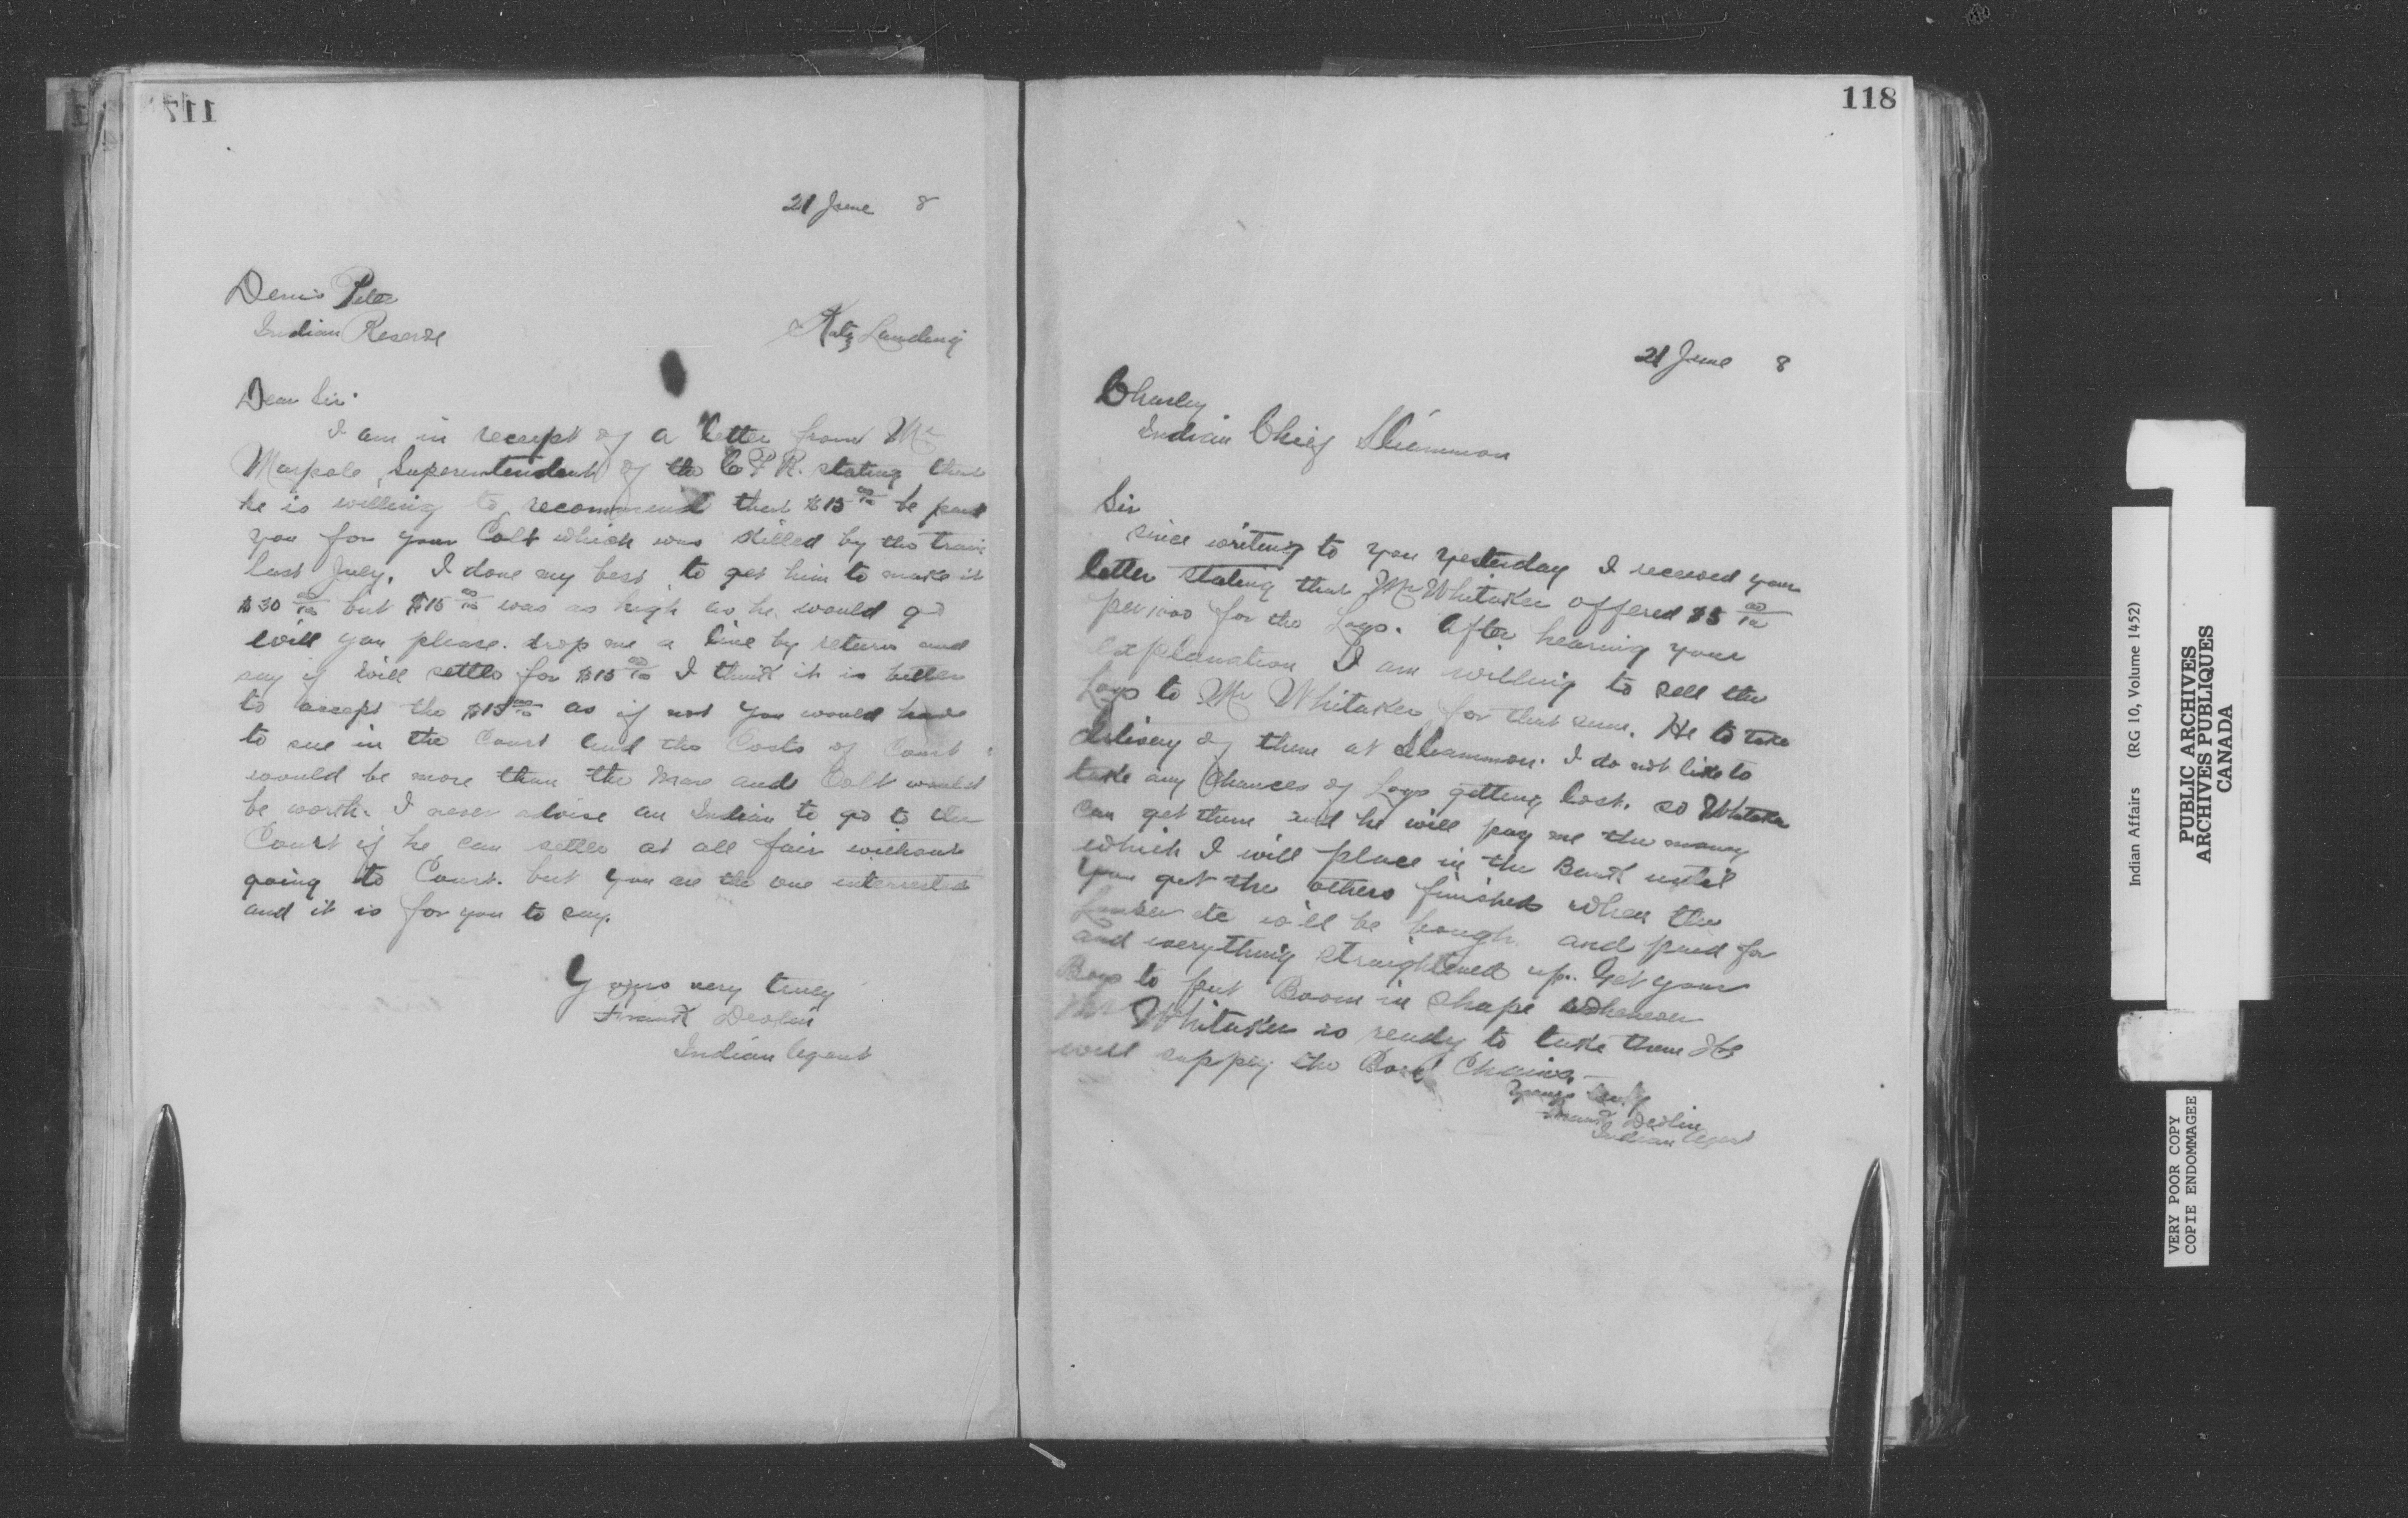 117
21 June 8
Denis Peter
Indian Reserve
Katz Landing
Dear Sir.
I am in receipt of a letter from Mr
Marpole, Superentendent of the C P R. stating that
he is willing to recommend that $15 00/100 be paid
you for your Colt which was killed by the train
last July. I done my best to get him to make it
$30 00/100 but $15 00/100 was as high as he would go
will you please drop me a line by return and
say if will settle for $15 00/100 I think it is better
to accept the $15 00/100 as if not you would have
to sue in the Court and the Costs of Court
would be more than the Mare and Colt would
be worth. I never advise an Indian to go to the
Court if he can settle at all fair without
going to Court. but you are the one interrested
and it is for you to say.
Yours very truly
Frank Devlin
Indian Agent
118
21 June 8
Charley
Indian Chief Sliammon
Sir
since writing to you yesterday I received your
letter stating that Mr Whitaker offered $5 00/100
per 1000 for the Logs. After hearing your
explanation I am willing to sell the
Logs to Mr Whitaker for that sum. He to take
delivery of them at Sliammon. I do not like to
take any Chances of Logs getting lost. so Whitaker
can get them and he will pay me the money
which I will place in the Bank until
you get the others finished when the
Lumber etc will be bough and paid for
and everything straightened up. Get your
Boys to put Boom in shape whenever
Mr Whitaker is ready to take them He
will supply the Boom Chains.
Yours truly
Frank Devlin
Indian Agent
Indian Affairs (RG 10, Volume 1452)
PUBLIC ARCHIVES
ARCHIVES PUBLIQUES
CANADA
VERY POOR COPY
COPIE ENDOMMAGEE